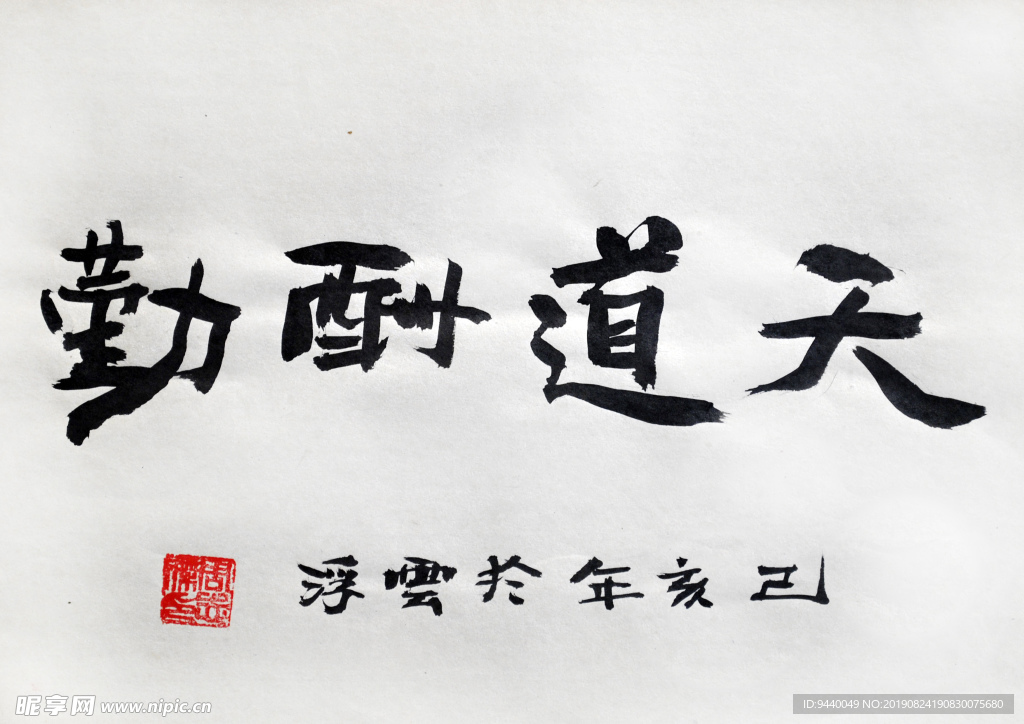 天道酬勤
己亥年於雲浮
昵享网 www.nipic.cn
ID:9440049 NO:20190824190830075680